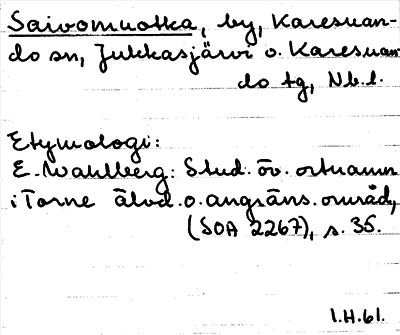 Saivomuotka, by, Karesuan-
do sn, Jukkasjärvi o. Karesuan
do tg, Nb.l.
Etymologi:
E. Wahlberg: Stud. öv. ortnamn
i Torne älvd. o. angräns. områd,
(SOA 2267), s. 35.
1.H.61.